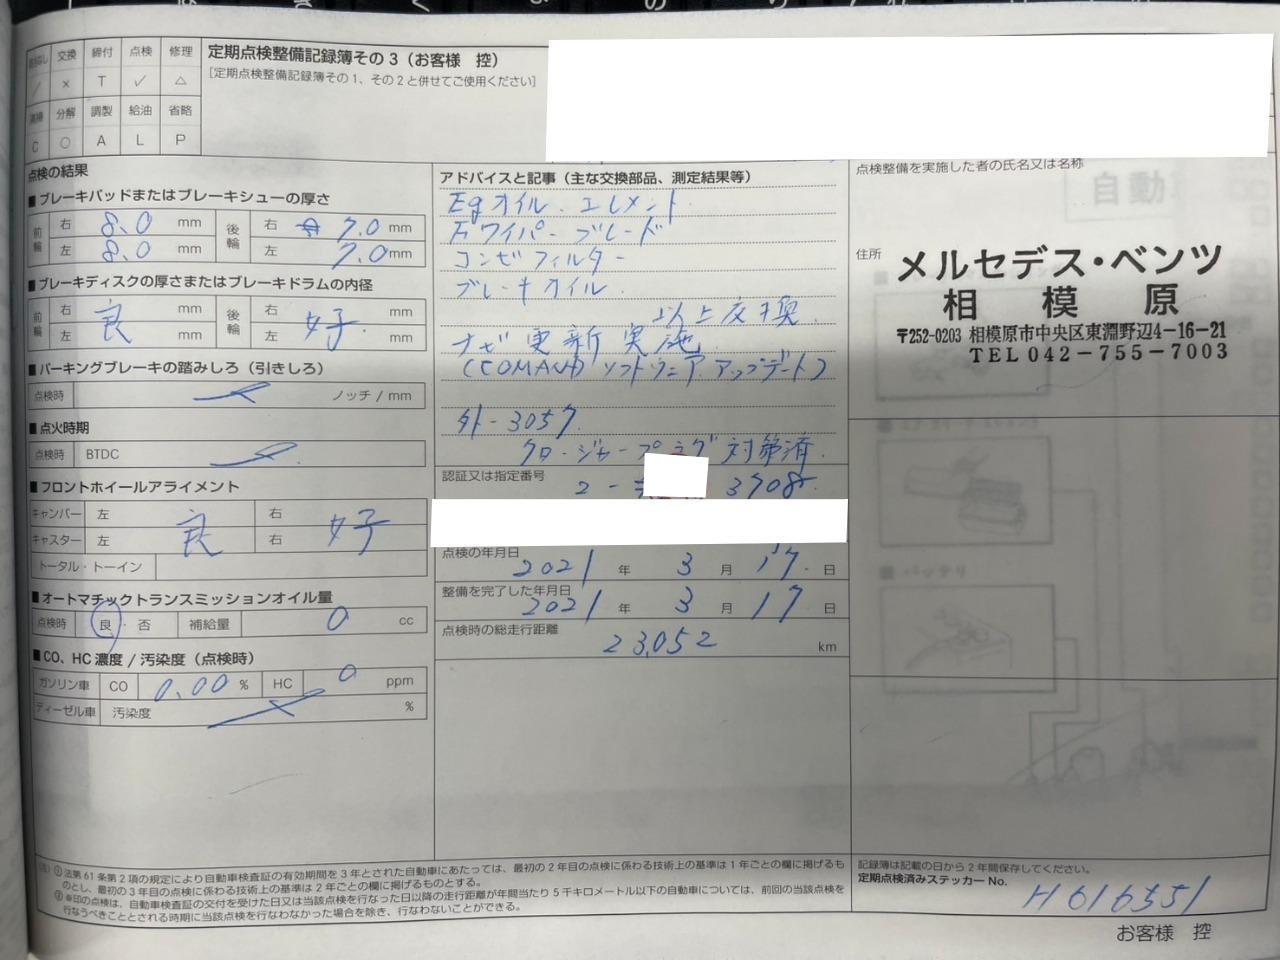 交換 締付 点検 修理
× T ✓ △
分解 調製 給油 省略
C ○ A L P
定期点検整備記録簿その3(お客様 控)
[定期点検整備記録簿その1、その2と併せてご使用ください]
点検の結果
■ブレーキパッドまたはブレーキシューの厚さ
前輪 右 8.0 mm 後輪 右 7.0 mm
左 8.0 mm 左 7.0 mm
■ブレーキディスクの厚さまたはブレーキドラムの内径
前輪 右 良 mm 後輪 右 好 mm
左 mm 左 mm
■パーキングブレーキの踏みしろ(引きしろ)
点検時 ノッチ/mm
■点火時期
点検時 BTDC
■フロントホイールアライメント
キャンバー 左 良 右 好
キャスター 左 右
トータル・トーイン
■オートマチックトランスミッションオイル量
点検時 良・否 補給量 0 cc
■CO、HC濃度/汚染度(点検時)
ガソリン車 CO 0.00 % HC 0 ppm
ディーゼル車 汚染度 %
アドバイスと記事(主な交換部品、測定結果等)
Egオイル.エレメント
Fワイパーブレード
コンビフィルター
ブレーキオイル
以上交換.
ナビ更新実施
(COMAND ソフトウェア アップデート)
外-3057.
クロージャープラグ対策済.
認証又は指定番号
2- 3708
点検の年月日
2021 年 3 月 17 日
整備を完了した年月日
2021 年 3 月 17 日
点検時の総走行距離
23,052 km
点検整備を実施した者の氏名又は名称
住所
メルセデス・ベンツ
相模原
〒252-0203 相模原市中央区東淵野辺4-16-21
TEL 042-755-7003
法第61条第2項の規定により自動車検査証の有効期間を3年とされた自動車にあたっては、最初の2年目の点検に係わる技術上の基準は1年ごとの欄に掲げるものとし、最初の3年目の点検に係わる技術上の基準は2年ごとの欄に掲げるものとする。
※印の点検は、自動車検査証の交付を受けた日又は当該点検を行なった日以降の走行距離が年間当たり5千キロメートル以下の自動車については、前回の当該点検を行なうべきこととされる時期に当該点検を行なわなかった場合を除き、行なわないことができる。
記録簿は記載の日から2年間保存してください。
定期点検済みステッカーNo.
H616551
お客様 控